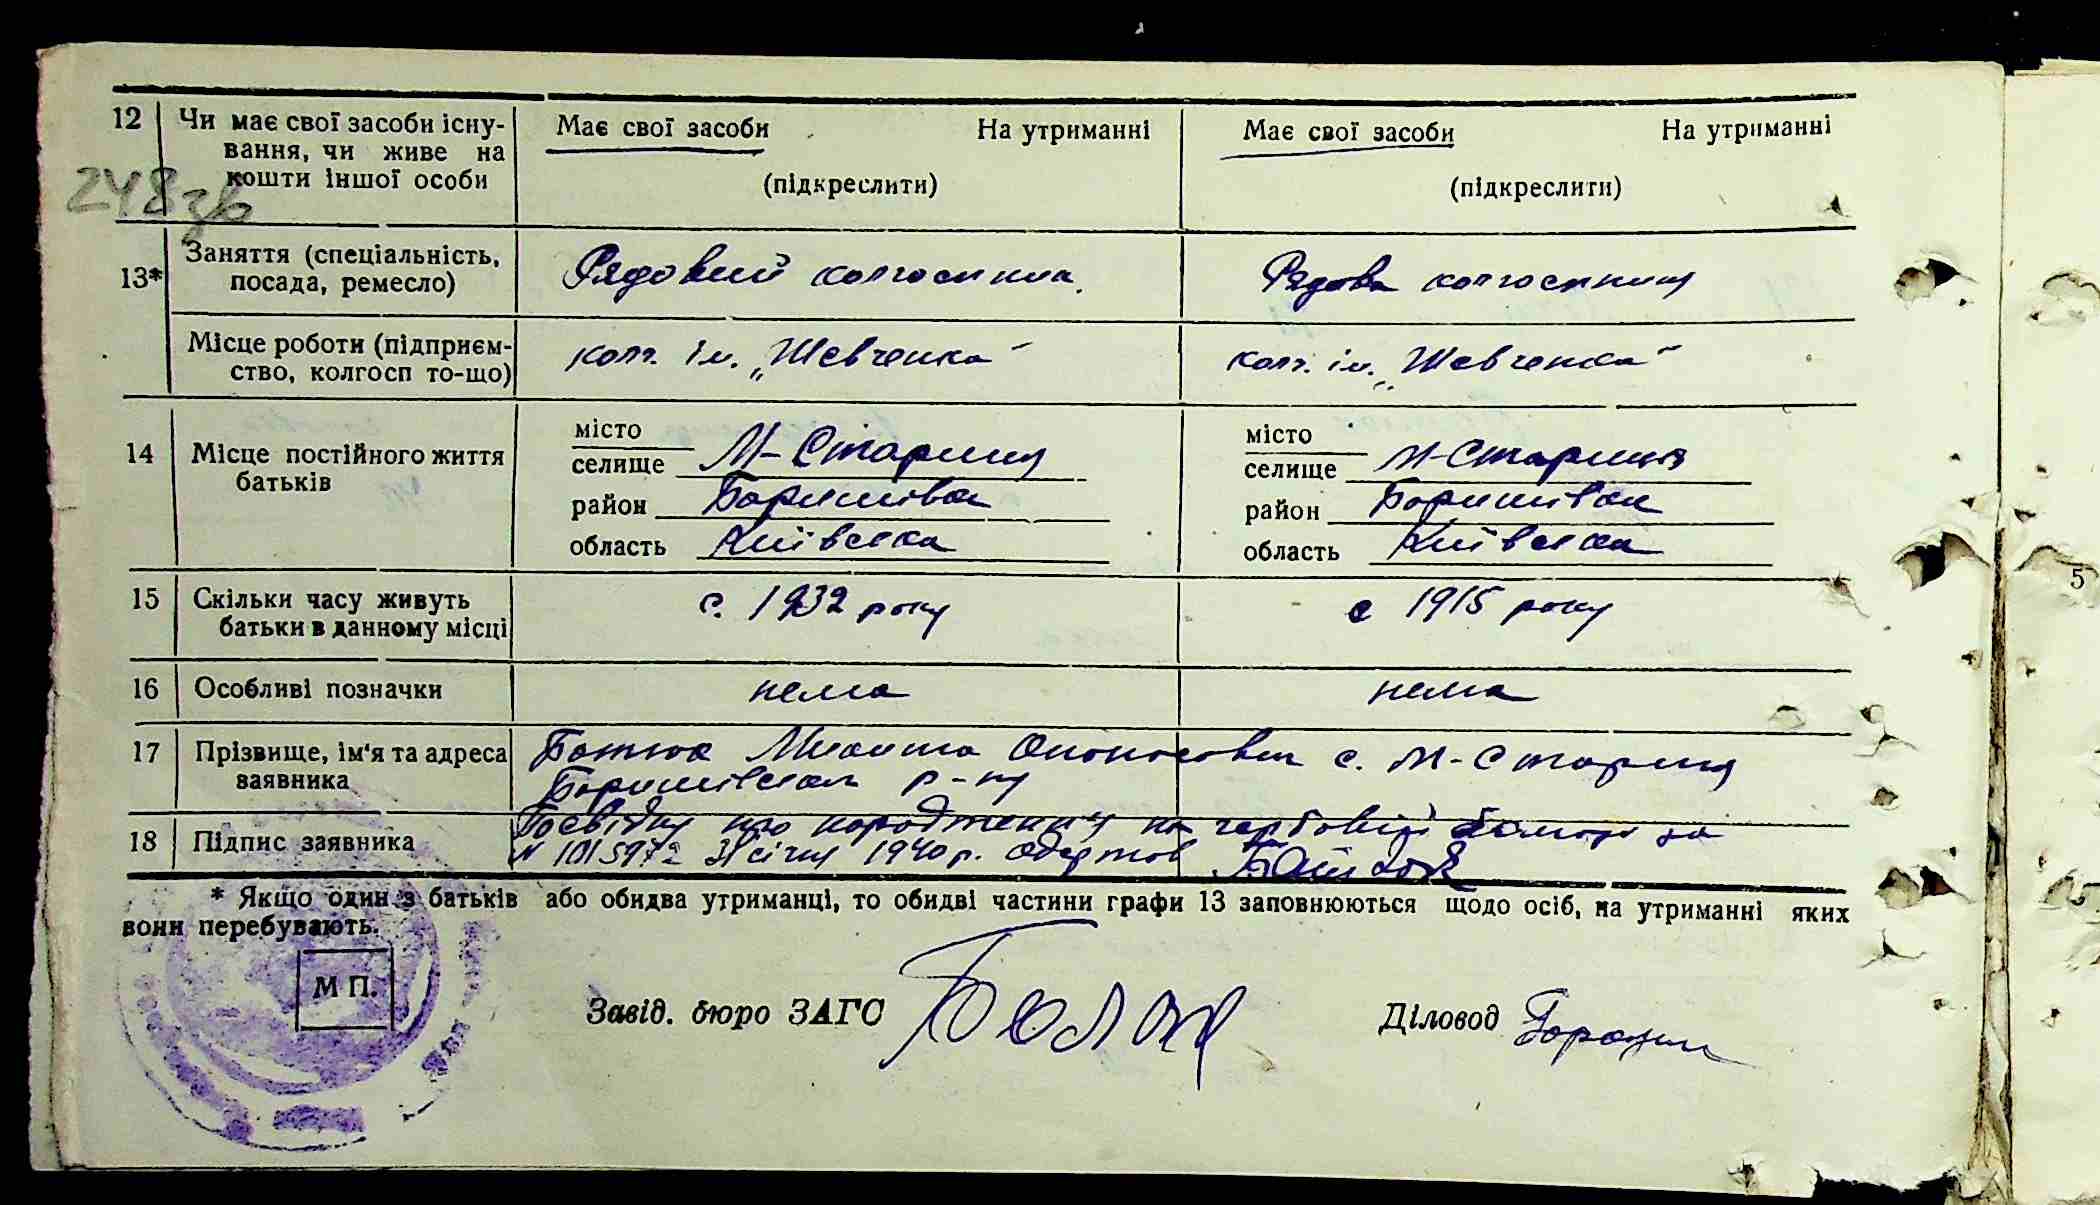 12 Чи має свої засоби існу- Має свої засоби На утриманні Має свої засоби На утриманні
вання, чи живе на
кошти іншої особи (підкреслити) (підкреслити)
248зв
13* Заняття (спеціальність, Рядовий колгоспник Рядова колгоспниця
посада, ремесло)
Місце роботи (підприєм- колг. ім. „Шевченка" колг. ім. „Шевченка"
ство, колгосп то-що)
14 Місце постійного життя місто місто
батьків селище М-Стариця селище М-Стариця
район Баришівськ район Баришівськ
область Київська область Київська
15 Скільки часу живуть с 1932 року с 1915 року
батьки в данному місці
16 Особливі позначки нема нема
17 Прізвище, ім'я та адреса Микита с. М-Стариця
заявника Баришівськ р-ну
18 Підпис заявника про народження на гербовій за
N 1015972 31 січня 1940 р. одержав
* Якщо один з батьків або обидва утриманці, то обидві частини графи 13 заповнюються щодо осіб, на утриманні яких
вони перебувають.
М П.
Завід. бюро ЗАГС Діловод
5